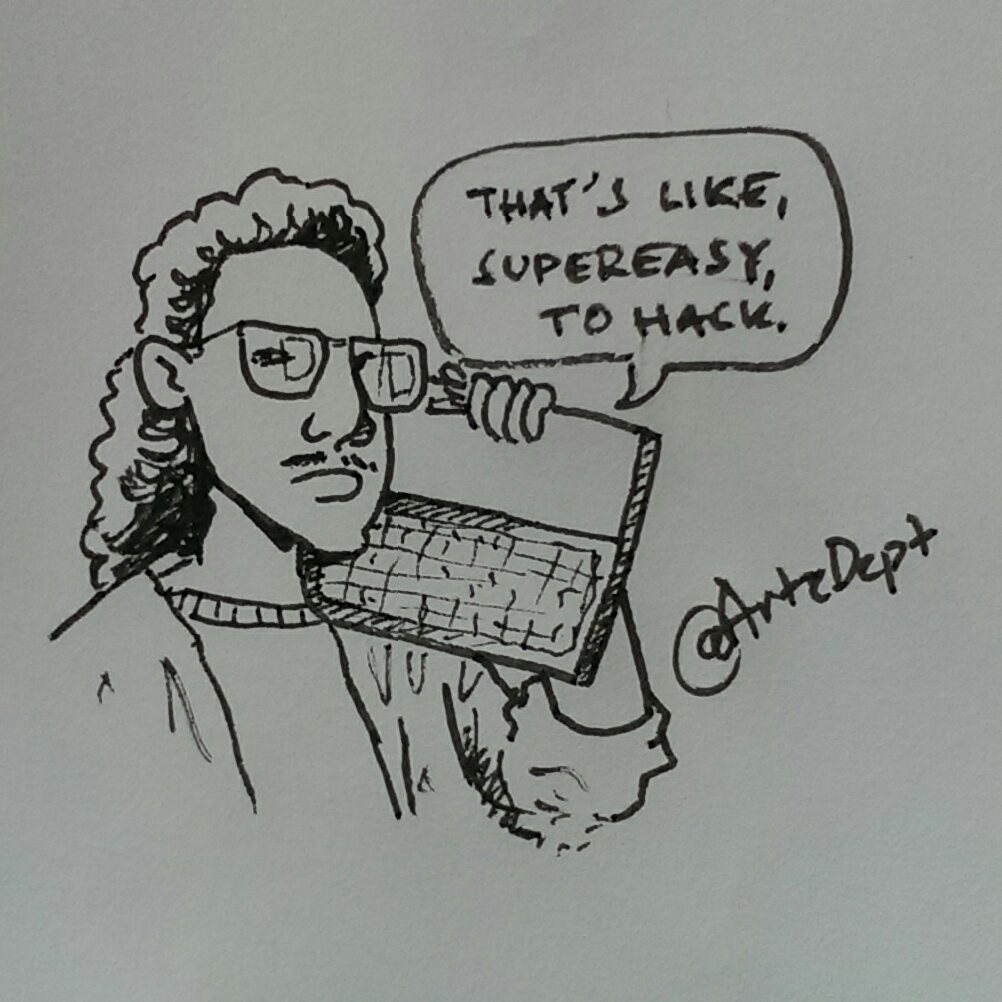 THAT'S LIKE,
SUPEREASY,
TO HACK.
@ArteDept